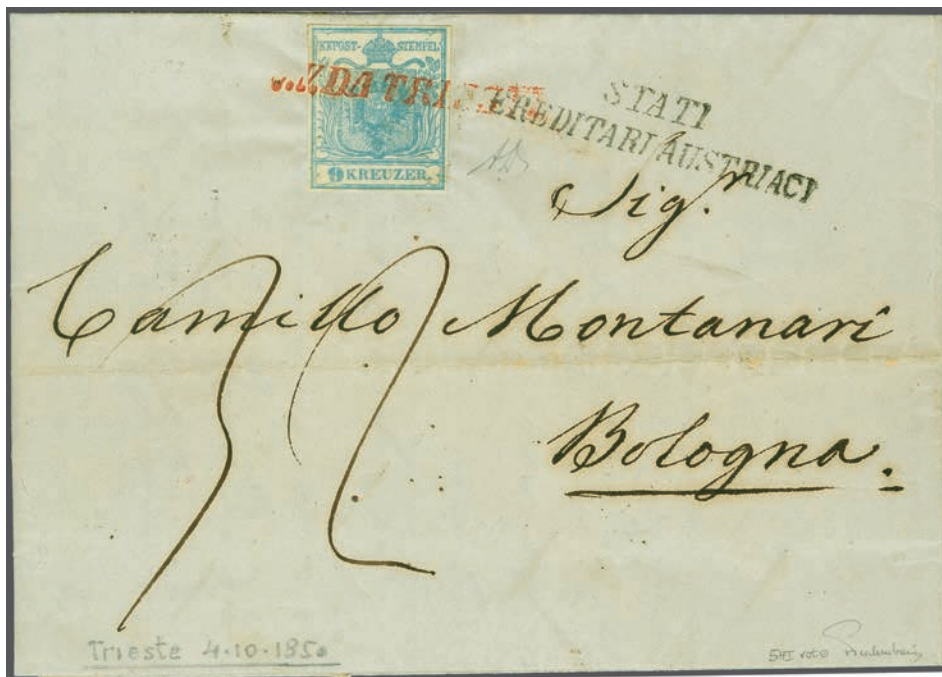 KKPOST-STEMPEL
9 KREUZER.
DA TRIESTE
STATI
EREDITARJ AUSTRIACI
Sig.r
Camillo Montanari
Bologna.
Trieste 4.10.1850